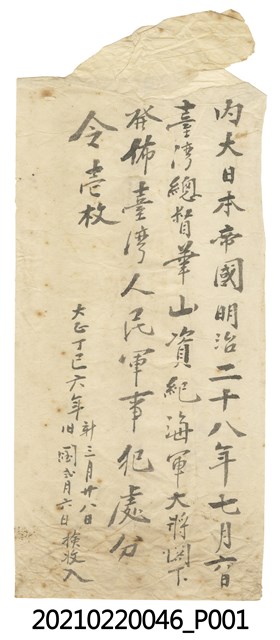 內大日本帝國明治二十八年七月六日
臺灣總督華山資紀海軍大將閣下
發佈臺灣人民軍事犯處分
令壱枚
大正丁巳六年新三月廿八日
旧閏弍月六日検收入
20210220046_P001